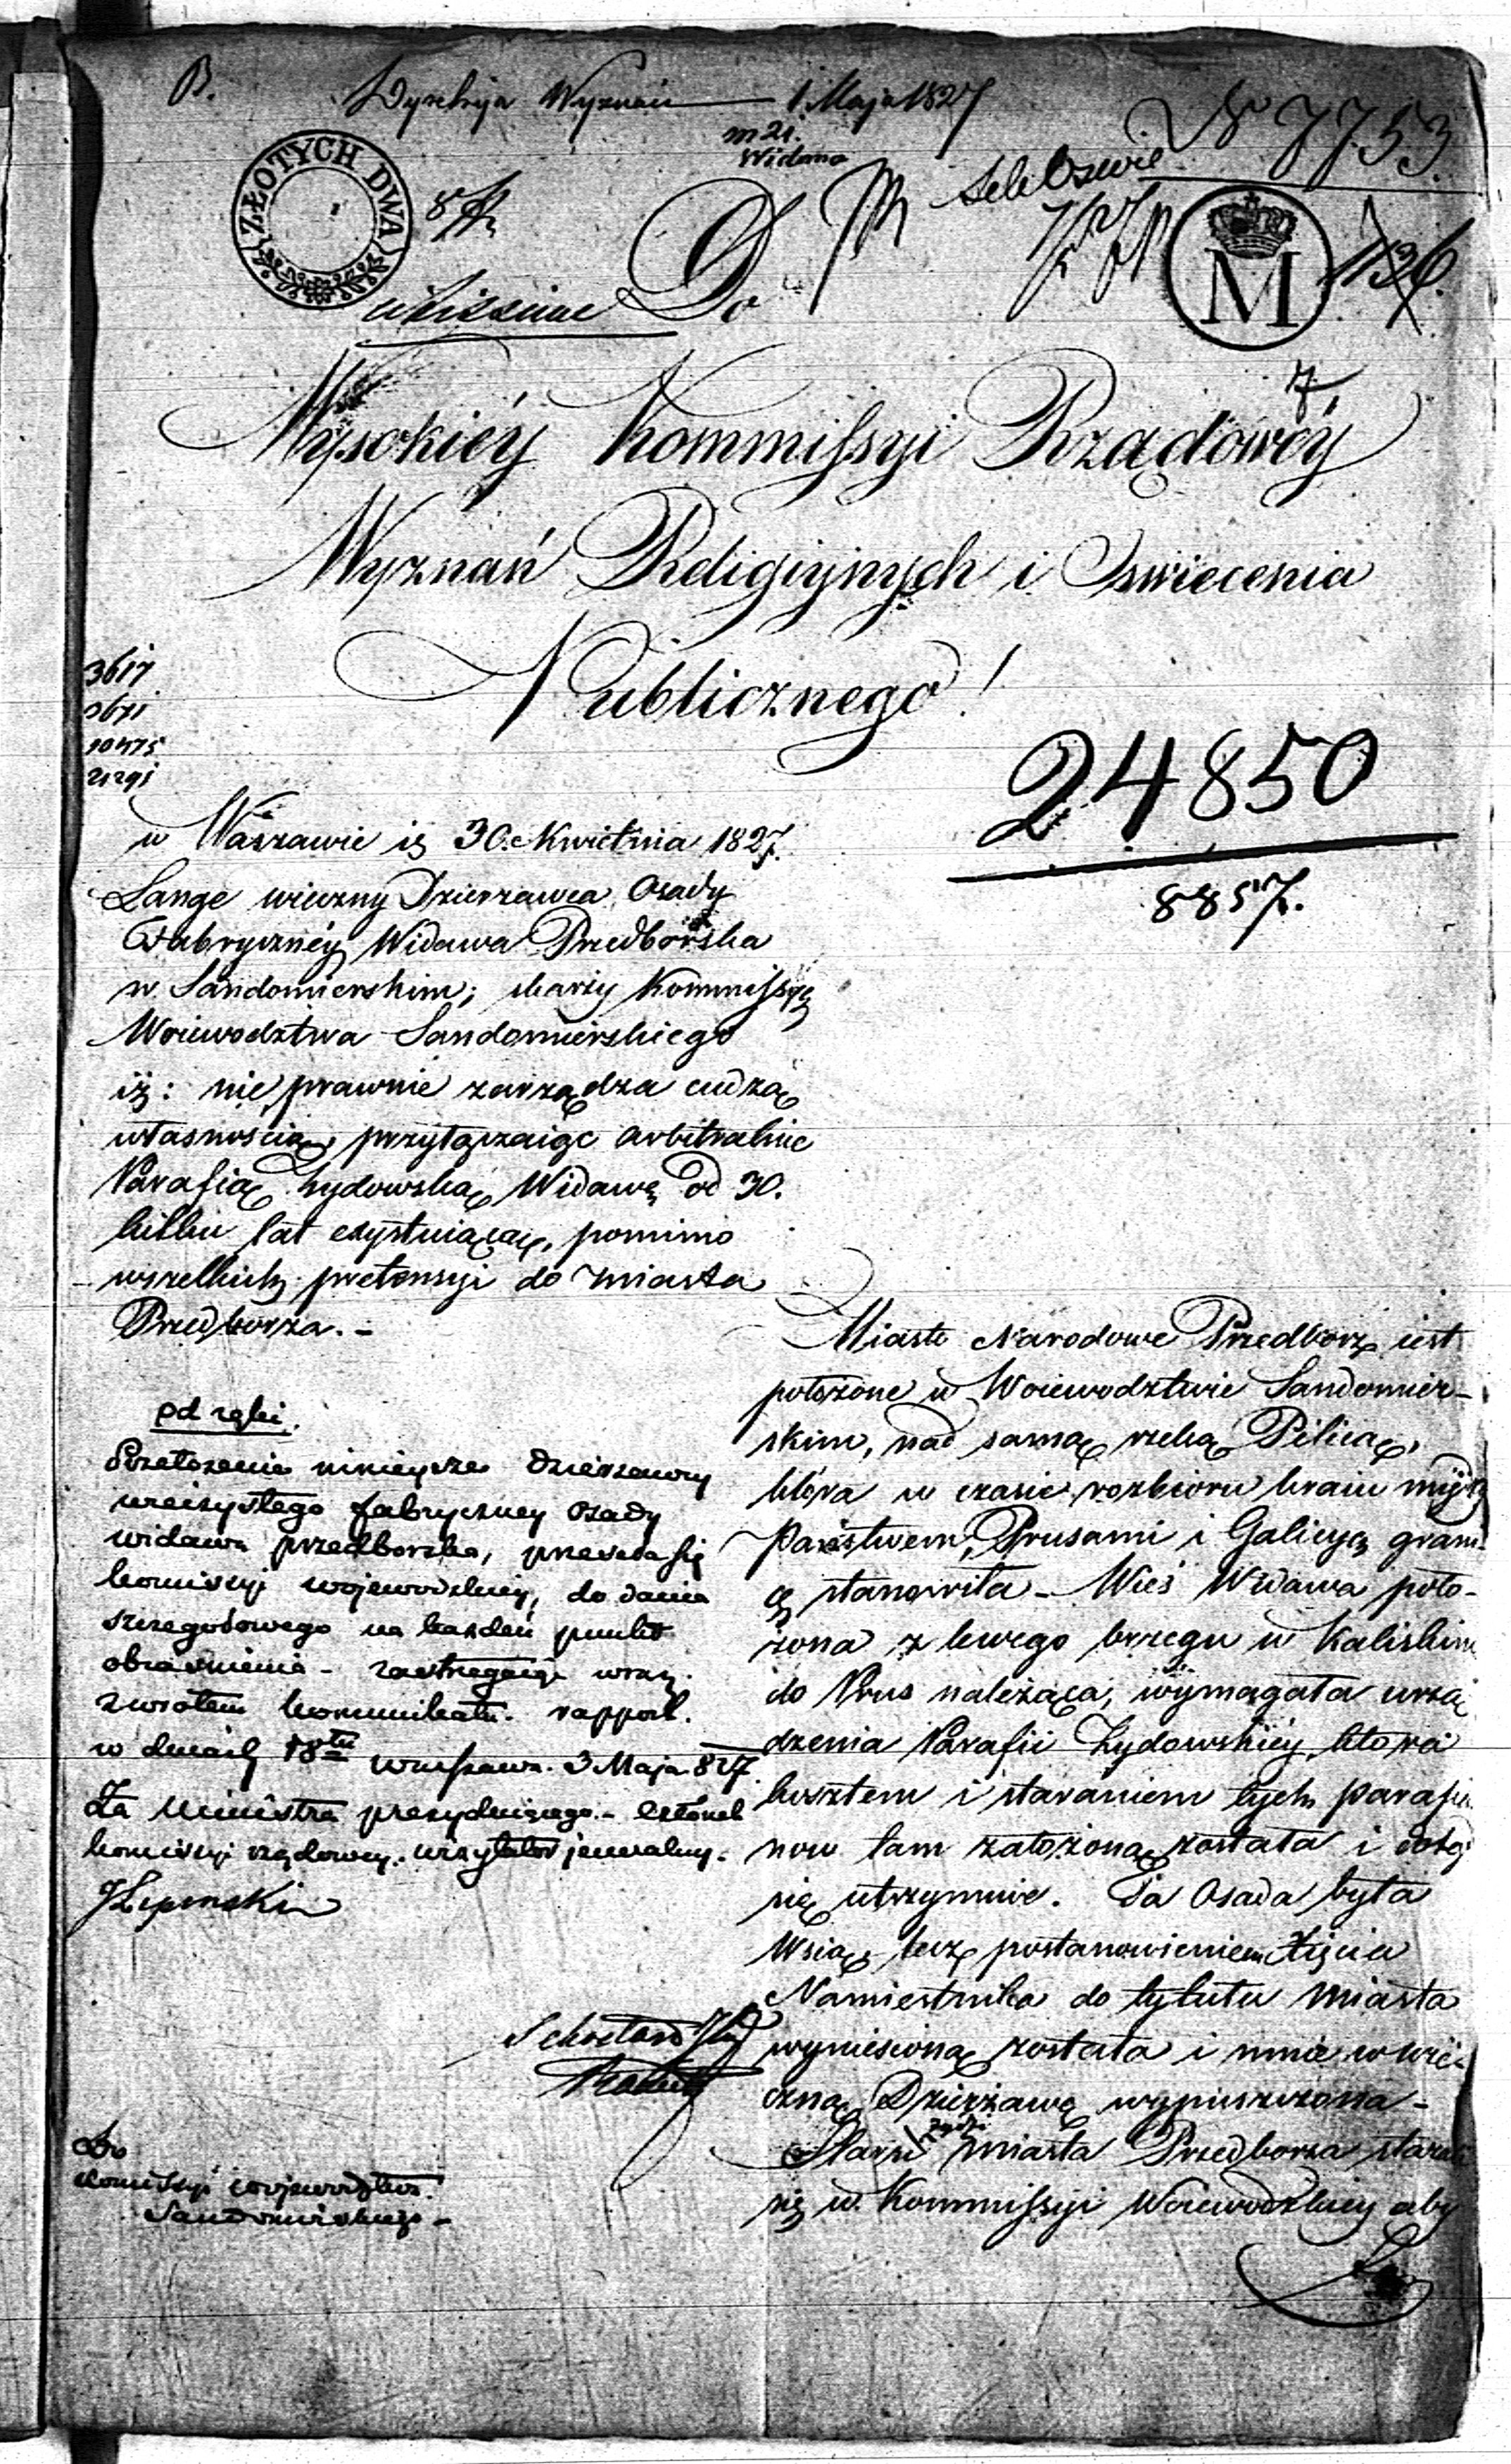 B. Dyrekcyja Wyznań 1 Maja 1827
N 7753
m 21.
Widawa
ZŁOTYCH DWA
M
1136.
Do
7.
Wysokiéy Kommissyi Rządowéy
Wyznań Religiynych i Oswiecenia
Publicznego!
3617
3671
10475
21291
24850
8857.
w Warszawie is 30. Kwietnia 1827.
Lange wieczny Dzierzawca Osady
Fabrycznéy Widawa Przedborska
w Sandomierskim; skarży Kommissyę
Woiewodztwa Sandomierskiego
iż: nie prawnie zarządza cudzą
własnością, przyłączaiąc arbitralnie
Parafią Żydowską Widawę od 30.
kilku lat exystuiącą, pomimo
wszelkich pretensyi do miasta
Przedborza. –
od ręki.
Przełożenie ninieysze Dzierzawcy
wieczystego fabryczney osady
widawa przedborska, przesyła się
komissyi wojewodzkiey, do dania
szczegołowego na każden punkt
obiaśnienia – zastrzegaiąc wraz.
zwrotem kommunikatu. rapport.
w dniach 18tu Warszawa. 3 Maja 827.
Za Ministra prezyduiącego – Członek
komissyi rządowey. wizytator jeneralny.
J Lipinski
Sekretarz Jlny
Do
komissyi wojewodztwa.
Sandomirskiego –
Miasto Narodowe Przedborz iest
położone w Woiewodztwie Sandomier-
skim, nad samą rzeką Pilicą,
która w czasie rozbioru kraiu między
Państwem, Prusami i Galicyą grani-
cę stanowiła – Wieś Widawa poło-
żona z lewego brzegu w Kaliskim
do Prus należąca, wymagała urzą
dzenia Parafii Żydowskiéy, która
kosztem i staraniem tych parafia
now tam założoną została i dotąd
się utrzymuie. Ta Osada była
Wsią, lecz postanowieniem Xięcia
Namiestnika do tytułu Miasta
wyniesioną została i mnie w wie-
czną Dzierżawę wypuszczona –
Starsi żydzi Miasta Przedborza starali
się w. Kommissyi Woiewodzkiey aby